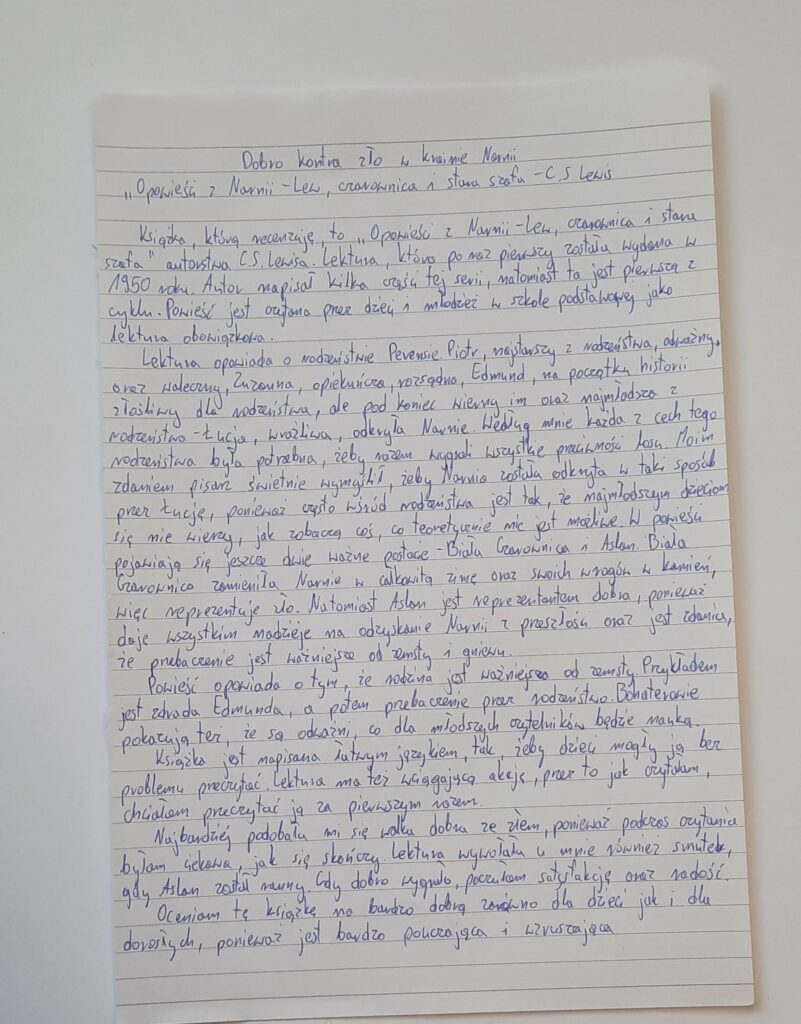 Dobro kontra zło w krainie Narnii
„Opowieści z Narnii - Lew, czarownica i stara szafa - C.S. Lewis
Książka, którą recenzuję, to „Opowieści z Narnii - Lew, czarownica i stara
szafa" autorstwa C.S. Lewisa. Lektura, która po raz pierwszy została wydana w
1950 roku. Autor napisał kilka części tej serii, natomiast ta jest pierwszą z
cyklu. Powieść jest czytana przez dzieci i młodzież w szkole podstawowej jako
lektura obowiązkowa.
Lektura opowiada o rodzeństwie Pevensie. Piotr, najstarszy z rodzeństwa, odważny
oraz waleczny, Zuzanna, opiekuńcza, rozsądna, Edmund, na początku historii
złośliwy dla rodzeństwa, ale pod koniec wierny im oraz najmłodsza z
rodzeństwa - Łucja, wrażliwa, odkryła Narnie. Według mnie każda z cech tego
rodzeństwa była potrzebna, żeby razem wygrali wszystkie przeciwności losu. Moim
zdaniem pisarz świetnie wymyślił, żeby Narnia została odkryta w taki sposób
przez Łucję, ponieważ często wśród rodzeństwa jest tak, że najmłodszym dzieciom
się nie wierzy, jak zobaczą coś, co teoretycznie nie jest możliwe. W powieści
pojawiają się jeszcze dwie ważne postacie - Biała Czarownica i Aslan. Biała
Czarownica zamieniła Narnie w całkowitą zimę oraz swoich wrogów w kamień,
więc reprezentuje zło. Natomiast Aslan jest reprezentantem dobra, ponieważ
daje wszystkim nadzieje na odzyskanie Narnii z przeszłości oraz jest zdania,
że przebaczenie jest ważniejsze od zemsty i gniewu.
Powieść opowiada o tym, że rodzina jest ważniejsza od zemsty. Przykładem
jest zdrada Edmunda, a potem przebaczenie przez rodzeństwo. Bohaterowie
pokazują też, że są odważni, co dla młodszych czytelników będzie nauką.
Książka jest napisana łatwym językiem, tak, żeby dzieci mogły ją bez
problemu przeczytać. Lektura ma też wciągającą akcję, przez to jak czytałam,
chciałam przeczytać ją za pierwszym razem.
Najbardziej podobała mi się walka dobra ze złem, ponieważ podczas czytania
byłam ciekawa, jak się skończy. Lektura wywołała u mnie również smutek,
gdy Aslan został ranny. Gdy dobro wygrało, poczułam satysfakcję oraz radość.
Oceniam tę książkę na bardzo dobrą zarówno dla dzieci jak i dla
dorosłych, ponieważ jest bardzo pouczająca i wzruszająca